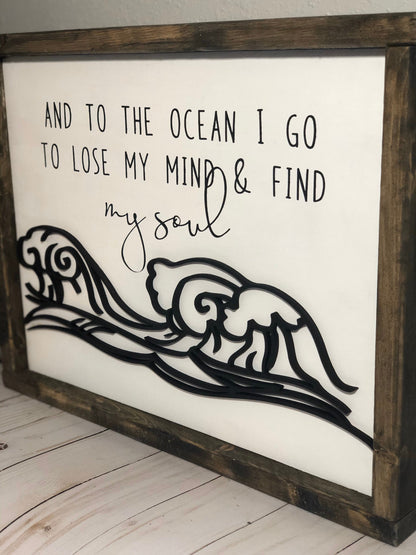 AND TO THE OCEAN I GO
TO LOSE MY MIND & FIND
my soul